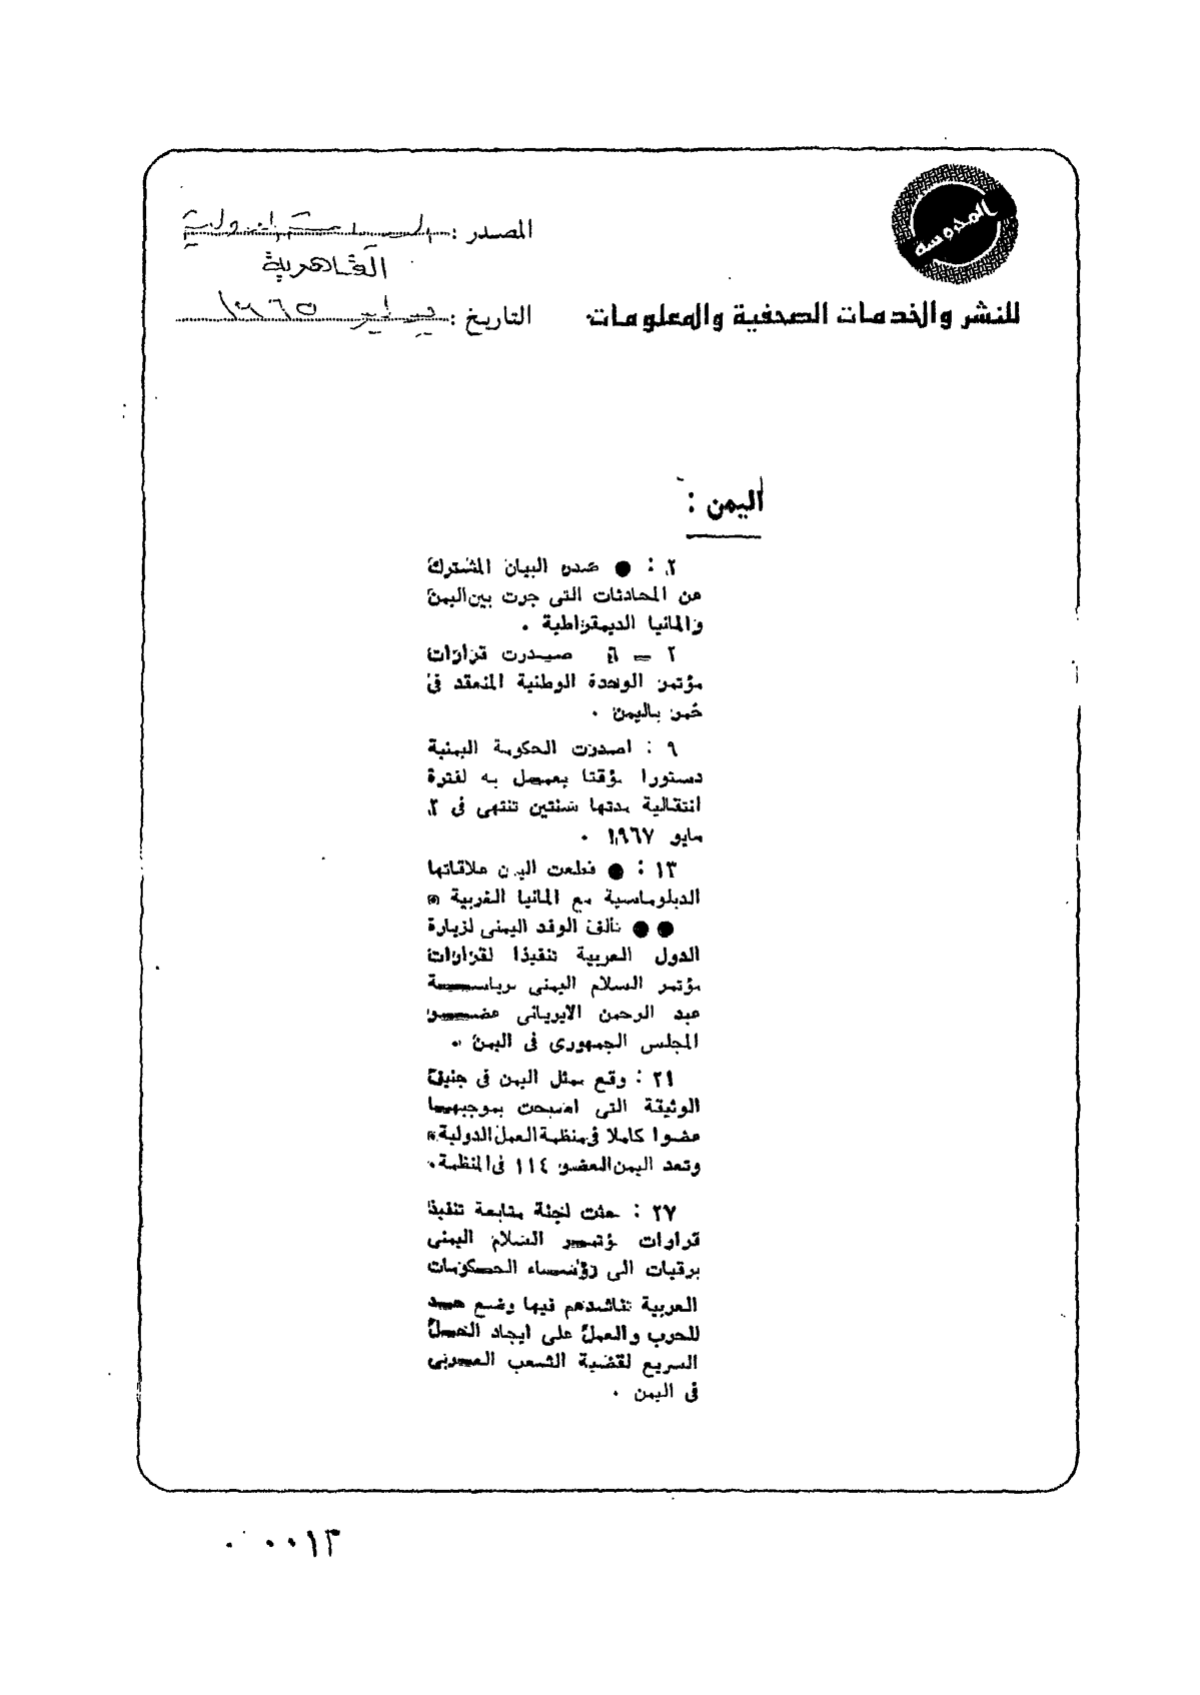 المحروسة
للنشر والخدمات الصحفية والمعلومات
المصدر : السياسة الدولية
القاهرية
التاريخ : يناير ١٩٦٥
اليمن :
٢ : ● صدر البيان المشترك
عن المحادثات التى جرت بين اليمن
والمانيا الديمقراطية .
٢ — ٦ صدرت قرارات
مؤتمر الوحدة الوطنية المنعقد فى
خمر باليمن .
٩ : اصدرت الحكومة اليمنية
دستورا مؤقتا يعمل به لفترة
انتقالية مدتها سنتين تنتهى فى ٢
مايو ١٩٦٧ .
١٣ : ● قطعت اليمن علاقاتها
الدبلوماسية مع المانيا الغربية
●● تألف الوفد اليمنى لزيارة
الدول العربية تنفيذا لقرارات
مؤتمر السلام اليمنى برياسة
عبد الرحمن الايريانى عضو
المجلس الجمهورى فى اليمن .
٢١ : وقع ممثل اليمن فى جنيف
الوثيقة التى اصبحت بموجبها
عضوا كاملا فى منظمة العمل الدولية
وتعد اليمن العضو ١١٤ فى المنظمة .
٢٧ : بعثت لجنة متابعة تنفيذ
قرارات مؤتمر السلام اليمنى
برقيات الى رؤساء الحكومات
العربية تناشدهم فيها وضع حد
للحرب والعمل على ايجاد الحل
السريع لقضية الشعب العربى
فى اليمن .
٠ ٠٠١٣